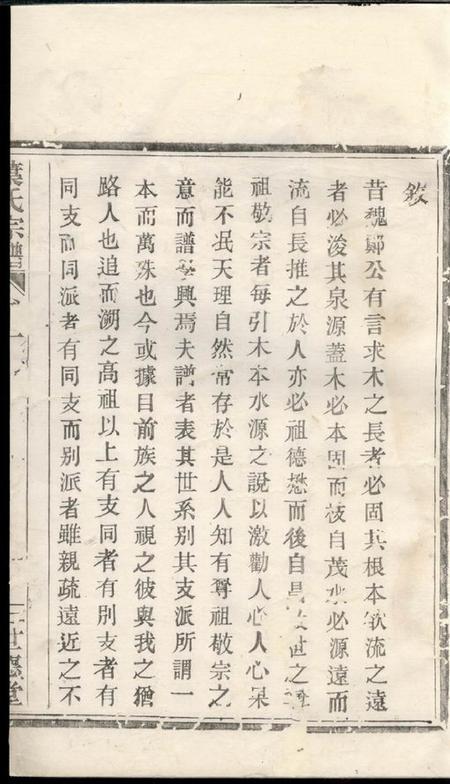 敘
昔魏鄭公有言求木之長者必固其根本欲流之遠
者必浚其泉源蓋木必本固而枝自茂水必源遠而
流自長推之於人亦必祖德懋而後自昌世之
祖敬宗者每引木本水源之說以激勸人心人心果
能不泯天理自然常存於是人人知有尊祖敬宗之
意而譜興焉夫譜者表其世系别其支派所謂一
本而萬殊也今或據目前族之人視之彼與我之猶
路人也追而溯之高祖以上有支同者有別支者有
同支而同派者有同支而别派者雖親疏遠近之不
氏宗譜